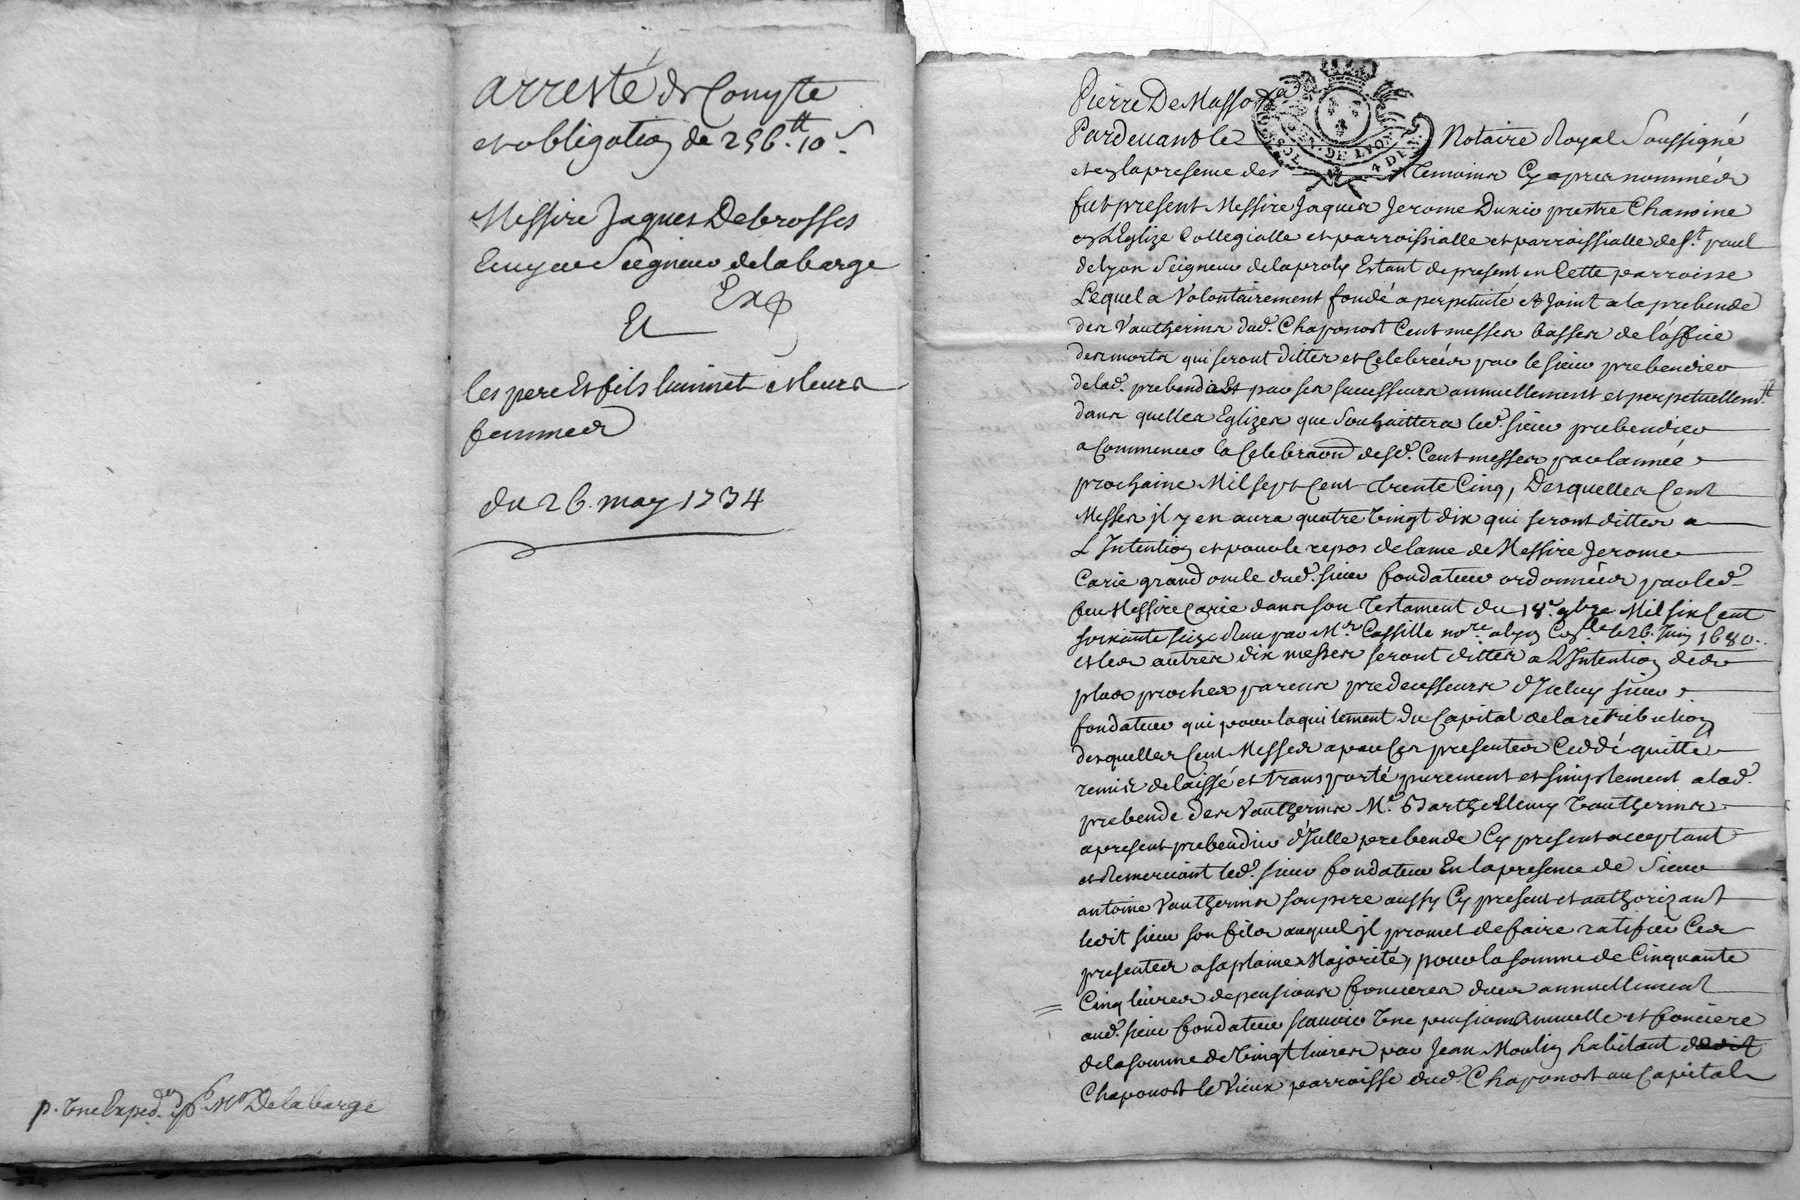 arresté de Compte
et obligation de 256.tt 10.s
Messire Jaques Debrosses
Ecuyer Seigneur delabarge
Exp
Et
les pere Et fils et leurs
femmes
du 26. may 1734
p. Une Exped.on p.r Mr Delabarge
Pierre De Masso
GEN. DE LYON
4 DEN.
Pardevant le Notaire Royal Soussigné
et en la presence des temoins Cy apres nommés
fut present Messire Jaques Jerome Dunio prestre Chanoine
en L'Eglize Collegialle et parroissialle et parroissialle de St. paul
de lyon Seigneur de Estant de present en Cette parroisse
Lequel a Volontairement fondé a perpetuité et Joint a la prebende
des Vautherins dud. Chaponost Cent messes basses de l'office
des morts qui seront dittes et Celebrées par le sieur prebendier
de lad. prebende Et par ses successeurs annuellement et perpetuellemt.
dans quelles Eglizes que Souhaittera led. sieur prebendier
a Commencer la Celebraon desd. Cent messes par lannée
prochaine Mil sept Cent trente Cinq, Desquelles Cent
Messes jl y en aura quatre Vingt dix qui seront dittes a
L'Intention et pour le repos de lame de Messire Jerome
Carie grand oncle dud. sieur fondateur ordonnées par led.
feu Messire Carie dans son Testament du 18.e 9bre Mil six Cent
soixante seize Reçu par Mr. Cassille nore. a lyon le 26. Juin 1680.
et les autres dix messes seront dittes a L'Intention de
plus proches parens predecesseurs d'Iceluy sieur
fondateur qui pour laquitement du Capital de la retribution
desquelles Cent Messes a par Ces presentes Ceddé quitté
remis delaissé et transporté purement et simplement a lad.
prebende des Vautherins Me. Barthellemy Vautherins
a present prebendier d'Icelle prebende Cy present acceptant
et Remerciant led. sieur fondateur En la presence de Sieur
antoine Vautherins son pere aussy Cy present et authorizant
ledit sieur son fils auquel jl promet de faire ratifier Ces
presentes a sa plaine Majorité, pour la somme de Cinquante
Cinq livres de pensions foncieres dues annuellement
aud. sieur fondateur scavoir Une pension Annuelle et fonciere
de la somme de Vingt livres par Jean Moulin habitant dudit
Chaponost le Vieux parroisse dud. Chaponost au Capital